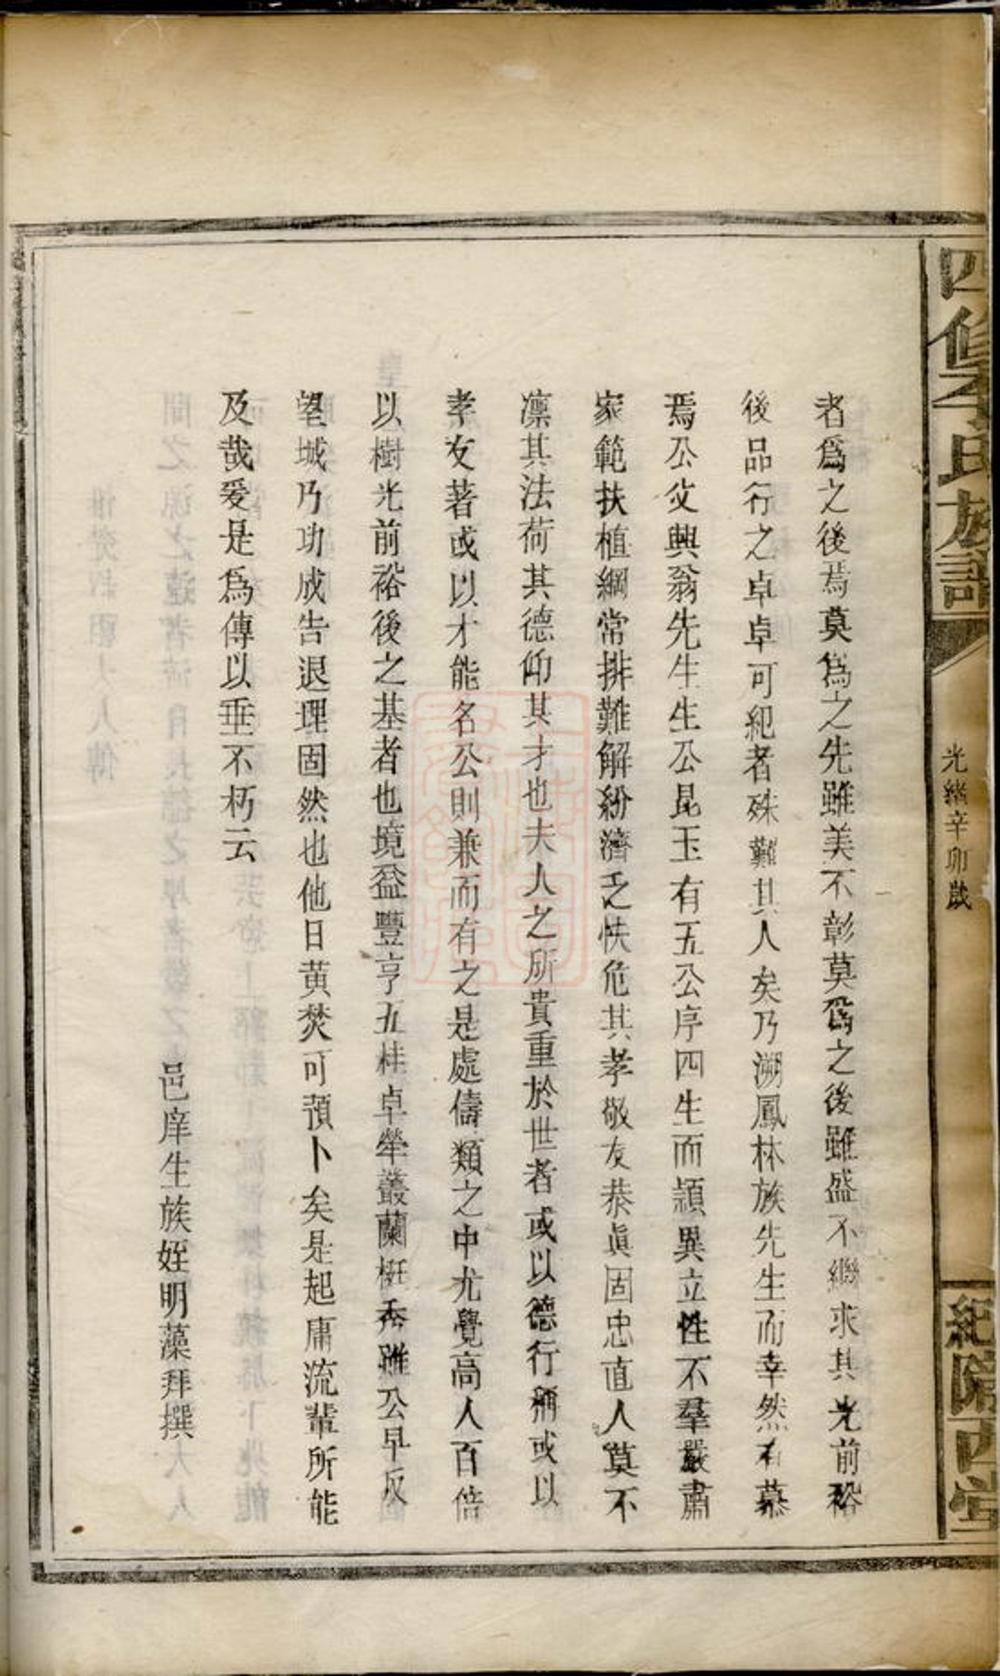 四修李氏族譜
光緒辛卯歲
紀隴西堂
者爲之後焉莫爲之先雖美不彰莫爲之後雖盛不繼求其光前裕
後品行之卓卓可紀者殊難其人矣乃溯鳳林族先生而幸然有慕
焉公父興翁先生生公昆玉有五公序四生而穎異立性不羣嚴肅
家範扶植綱常排難解紛濟乏快危其孝敬友恭眞固忠直人莫不
凜其法荷其德仰其才也夫人之所貴重於世者或以德行稱或以
孝友著或以才能名公則兼而有之是處儔類之中尤覺高人百倍
以樹光前裕後之基者也境益豐亨五桂卓犖叢蘭挺秀雖公早反
望城乃功成告退理固然也他日黄焚可預卜矣是起庸流輩所能
及哉爰是爲傳以垂不朽云
邑庠生族姪明藻拜撰